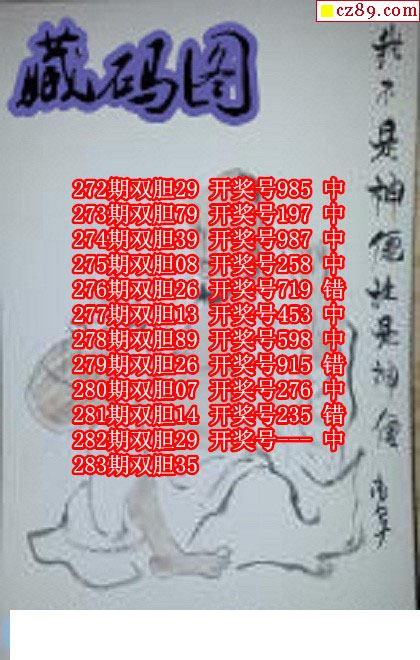 cz89.com
藏码图
我不是神 是神
272期双胆29 开奖号985 中
273期双胆79 开奖号197 中
274期双胆39 开奖号987 中
275期双胆08 开奖号258 中
276期双胆26 开奖号719 错
277期双胆13 开奖号453 中
278期双胆89 开奖号598 中
279期双胆26 开奖号915 错
280期双胆07 开奖号276 中
281期双胆14 开奖号235 错
282期双胆29 开奖号--- 中
283期双胆35